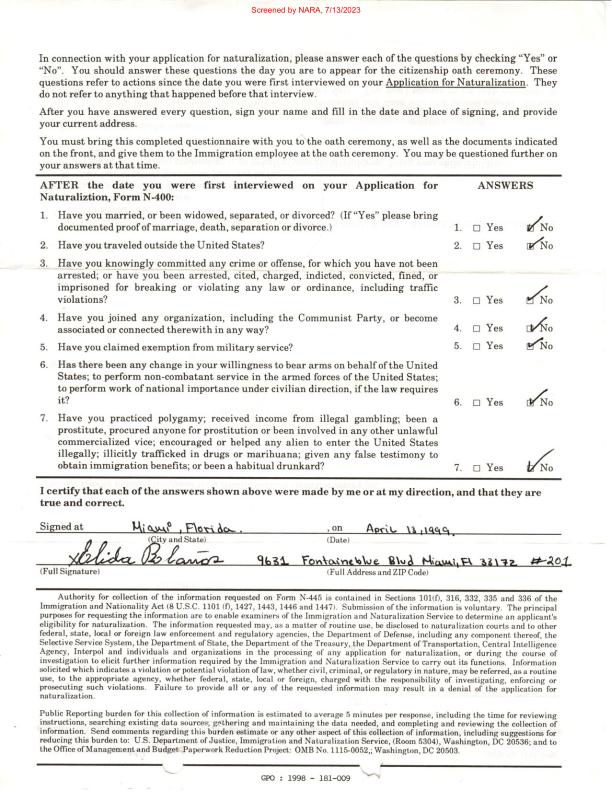 Screened by NARA, 7/13/2023
In connection with your application for naturalization, please answer each of the questions by checking “Yes” or
“No”. You should answer these questions the day you are to appear for the citizenship oath ceremony. These
questions refer to actions since the date you were first interviewed on your Application for Naturalization. They
do not refer to anything that happened before that interview.
After you have answered every question, sign your name and fill in the date and place of signing, and provide
your current address.
You must bring this completed questionnaire with you to the oath ceremony, as well as the documents indicated
on the front, and give them to the Immigration employee at the oath ceremony. You may be questioned further on
your answers at that time.
AFTER the date you were first interviewed on your Application for ANSWERS
Naturaliztion, Form N-400:
1. Have you married, or been widowed, separated, or divorced? (If “Yes” please bring
documented proof of marriage, death, separation or divorce.) 1. ☐ Yes ☑ No
2. Have you traveled outside the United States? 2. ☐ Yes ☑ No
3. Have you knowingly committed any crime or offense, for which you have not been
arrested; or have you been arrested, cited, charged, indicted, convicted, fined, or
imprisoned for breaking or violating any law or ordinance, including traffic
violations? 3. ☐ Yes ☑ No
4. Have you joined any organization, including the Communist Party, or become
associated or connected therewith in any way? 4. ☐ Yes ☑ No
5. Have you claimed exemption from military service? 5. ☐ Yes ☑ No
6. Has there been any change in your willingness to bear arms on behalf of the United
States; to perform non-combatant service in the armed forces of the United States;
to perform work of national importance under civilian direction, if the law requires
it? 6. ☐ Yes ☑ No
7. Have you practiced polygamy; received income from illegal gambling; been a
prostitute, procured anyone for prostitution or been involved in any other unlawful
commercialized vice; encouraged or helped any alien to enter the United States
illegally; illicitly trafficked in drugs or marihuana; given any false testimony to
obtain immigration benefits; or been a habitual drunkard? 7. ☐ Yes ☑ No
I certify that each of the answers shown above were made by me or at my direction, and that they are
true and correct.
Signed at Miami, Florida. , on April 13, 1999.
(City and State) (Date)
x Elida Bolaños 9631 Fontaineblue Blvd Miami, Fl 33172 #201
(Full Signature) (Full Address and ZIP Code)
Authority for collection of the information requested on Form N-445 is contained in Sections 101(f), 316, 332, 335 and 336 of the
Immigration and Nationality Act (8 U.S.C. 1101 (f), 1427, 1443, 1446 and 1447). Submission of the information is voluntary. The principal
purposes for requesting the information are to enable examiners of the Immigration and Naturalization Service to determine an applicant's
eligibility for naturalization. The information requested may, as a matter of routine use, be disclosed to naturalization courts and to other
federal, state, local or foreign law enforcement and regulatory agencies, the Department of Defense, including any component thereof, the
Selective Service System, the Department of State, the Department of the Treasury, the Department of Transportation, Central Intelligence
Agency, Interpol and individuals and organizations in the processing of any application for naturalization, or during the course of
investigation to elicit further information required by the Immigration and Naturalization Service to carry out its functions. Information
solicited which indicates a violation or potential violation of law, whether civil, criminal, or regulatory in nature, may be referred, as a routine
use, to the appropriate agency, whether federal, state, local or foreign, charged with the responsibility of investigating, enforcing or
prosecuting such violations. Failure to provide all or any of the requested information may result in a denial of the application for
naturalization.
Public Reporting burden for this collection of information is estimated to average 5 minutes per response, including the time for reviewing
instructions, searching existing data sources, gathering and maintaining the data needed, and completing and reviewing the collection of
information. Send comments regarding this burden estimate or any other aspect of this collection of information, including suggestions for
reducing this burden to: U.S. Department of Justice, Immigration and Naturalization Service, (Room 5304), Washington, DC 20536; and to
the Office of Management and Budget Paperwork Reduction Project: OMB No. 1115-0052,; Washington, DC 20503.
GPO : 1998 - 181-009